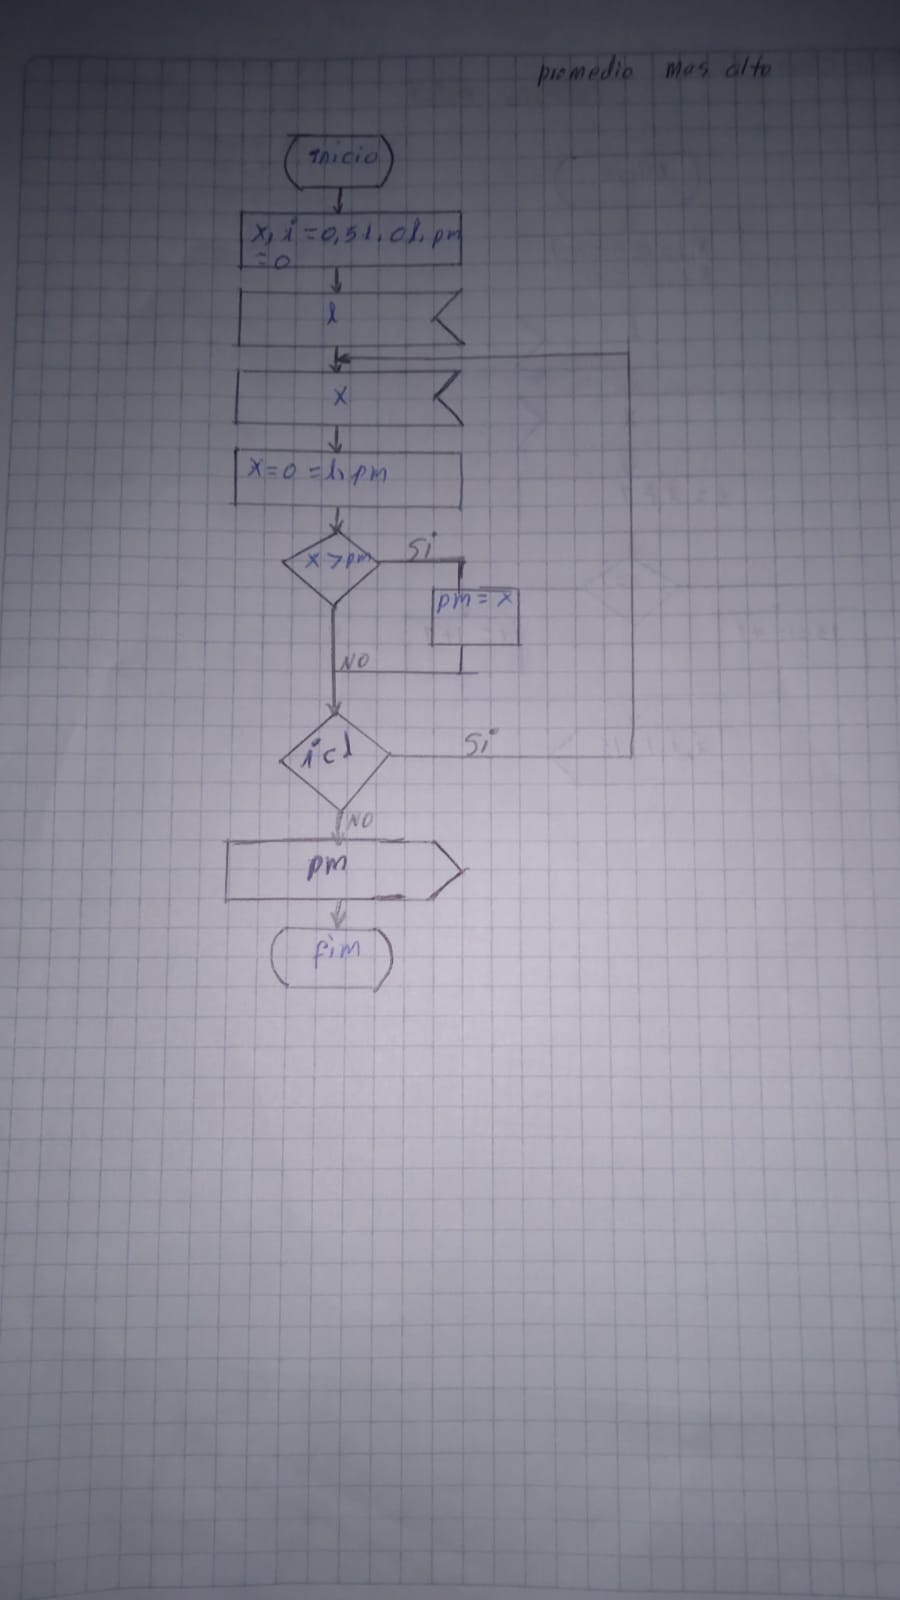 promedio mas alto
inicio
x, i = 0,51,01, pm
= 0
l
x
x = 0 = l, pm
x > pm
Si
pm = x
NO
i < l
Si
NO
pm
fim